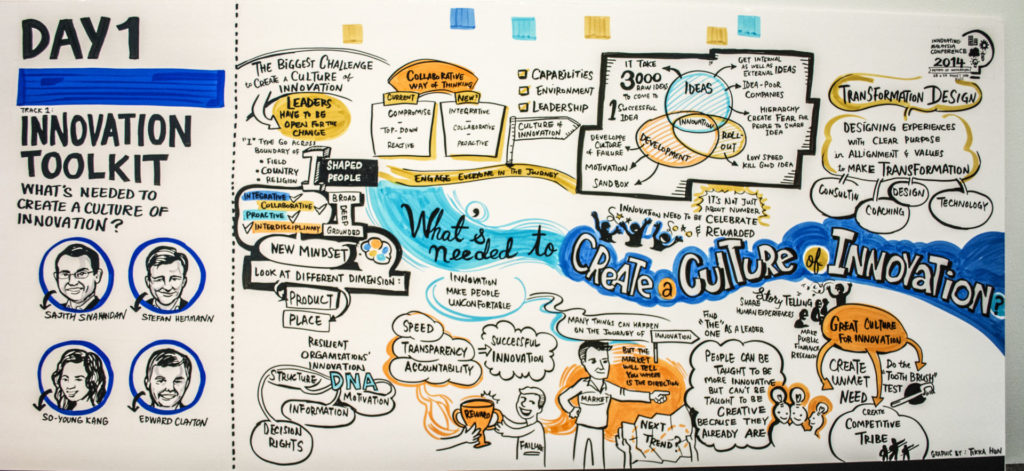 DAY 1
TRACK 1:
INNOVATION
TOOLKIT
WHAT'S NEEDED TO
CREATE A CULTURE OF
INNOVATION?
SAJITH SIVANANDAN
STEFAN HEITMANN
SO-YOUNG KANG
EDWARD CLAYTON
THE BIGGEST CHALLENGE
to CREATE A CULTURE of
INNOVATION
LEADERS
HAVE TO BE
OPEN FOR THE
CHANGE
"I" TYPE GO ACROSS
BOUNDARY OF
• FIELD
• COUNTRY
• RELIGION
SHAPED
PEOPLE
INTEGRATIVE
COLLABORATIVE
PROACTIVE
INTERDISCIPLINARY
BROAD
DEEP
GROUNDED
NEW MINDSET
LOOK AT DIFFERENT DIMENSION:
PRODUCT
PLACE
COLLABORATIVE
WAY OF THINKING
CURRENT
COMPROMISE
TOP-DOWN
REACTIVE
NEW!
INTEGRATIVE
COLLABORATIVE
PROACTIVE
CAPABILITIES
ENVIRONMENT
LEADERSHIP
CULTURE of
INNOVATION
ENGAGE EVERYONE IN THE JOURNEY
IT TAKE
3000
RAW IDEAS
TO COME TO
1 SUCCESSFUL
IDEA
IDEAS
INNOVATION
DEVELOPMENT
ROLL-
OUT
DEVELOPE
CULTURE
of FAILURE
MOTIVATION
SANDBOX
GET INTERNAL
AS WELL AS
EXTERNAL IDEAS
IDEA-POOR
COMPANIES
HIERARCHY
CREATE FEAR FOR
PEOPLE TO SHARE
IDEA
LOW SPEED
KILL GOOD IDEA
INNOVATING
MALAYSIA
CONFERENCE
2014
TRANSFORMATION DESIGN
DESIGNING EXPERIENCES
WITH CLEAR PURPOSE
in ALLIGNMENT & VALUES
to MAKE TRANSFORMATION
CONSULTIN
COACHING
DESIGN
TECHNOLOGY
What's
needed to
CREATE a CULTURE of INNOVATION?
INNOVATION NEED TO BE
CELEBRATE
& REWARDED
IT'S NOT JUST
ABOUT NUMBER
INNOVATION
MAKE PEOPLE
UNCONFORTABLE
RESILIENT
ORGANISATIONS'
INNOVATION
DNA
STRUCTURE
MOTIVATION
INFORMATION
DECISION
RIGHTS
SPEED
TRANSPARENCY
ACCOUNTABILITY
SUCCESSFUL
INNOVATION
REWARD
FAILURE
MANY THINGS CAN HAPPEN
ON THE JOURNEY OF
INNOVATION
BUT THE
MARKET
WILL TELL
YOU WHERE
IS THE DIRECTION
MARKET
NEXT
TREND?
FIND
"THE"
ONE AS A LEADER
PEOPLE CAN BE
TAUGHT TO BE
MORE INNOVATIVE
BUT CAN'T BE
TAUGHT TO BE
CREATIVE
BECAUSE THEY
ALREADY ARE
STORY TELLING
SHARE
HUMAN EXPERIENCES
MAKE
PUBLIC
FINANCE
RESEARCH
GREAT CULTURE
FOR INNOVATION
CREATE
UNMET
NEED
Do the
"TOOTH BRUSH"
TEST
CREATE
COMPETITIVE
TRIBE